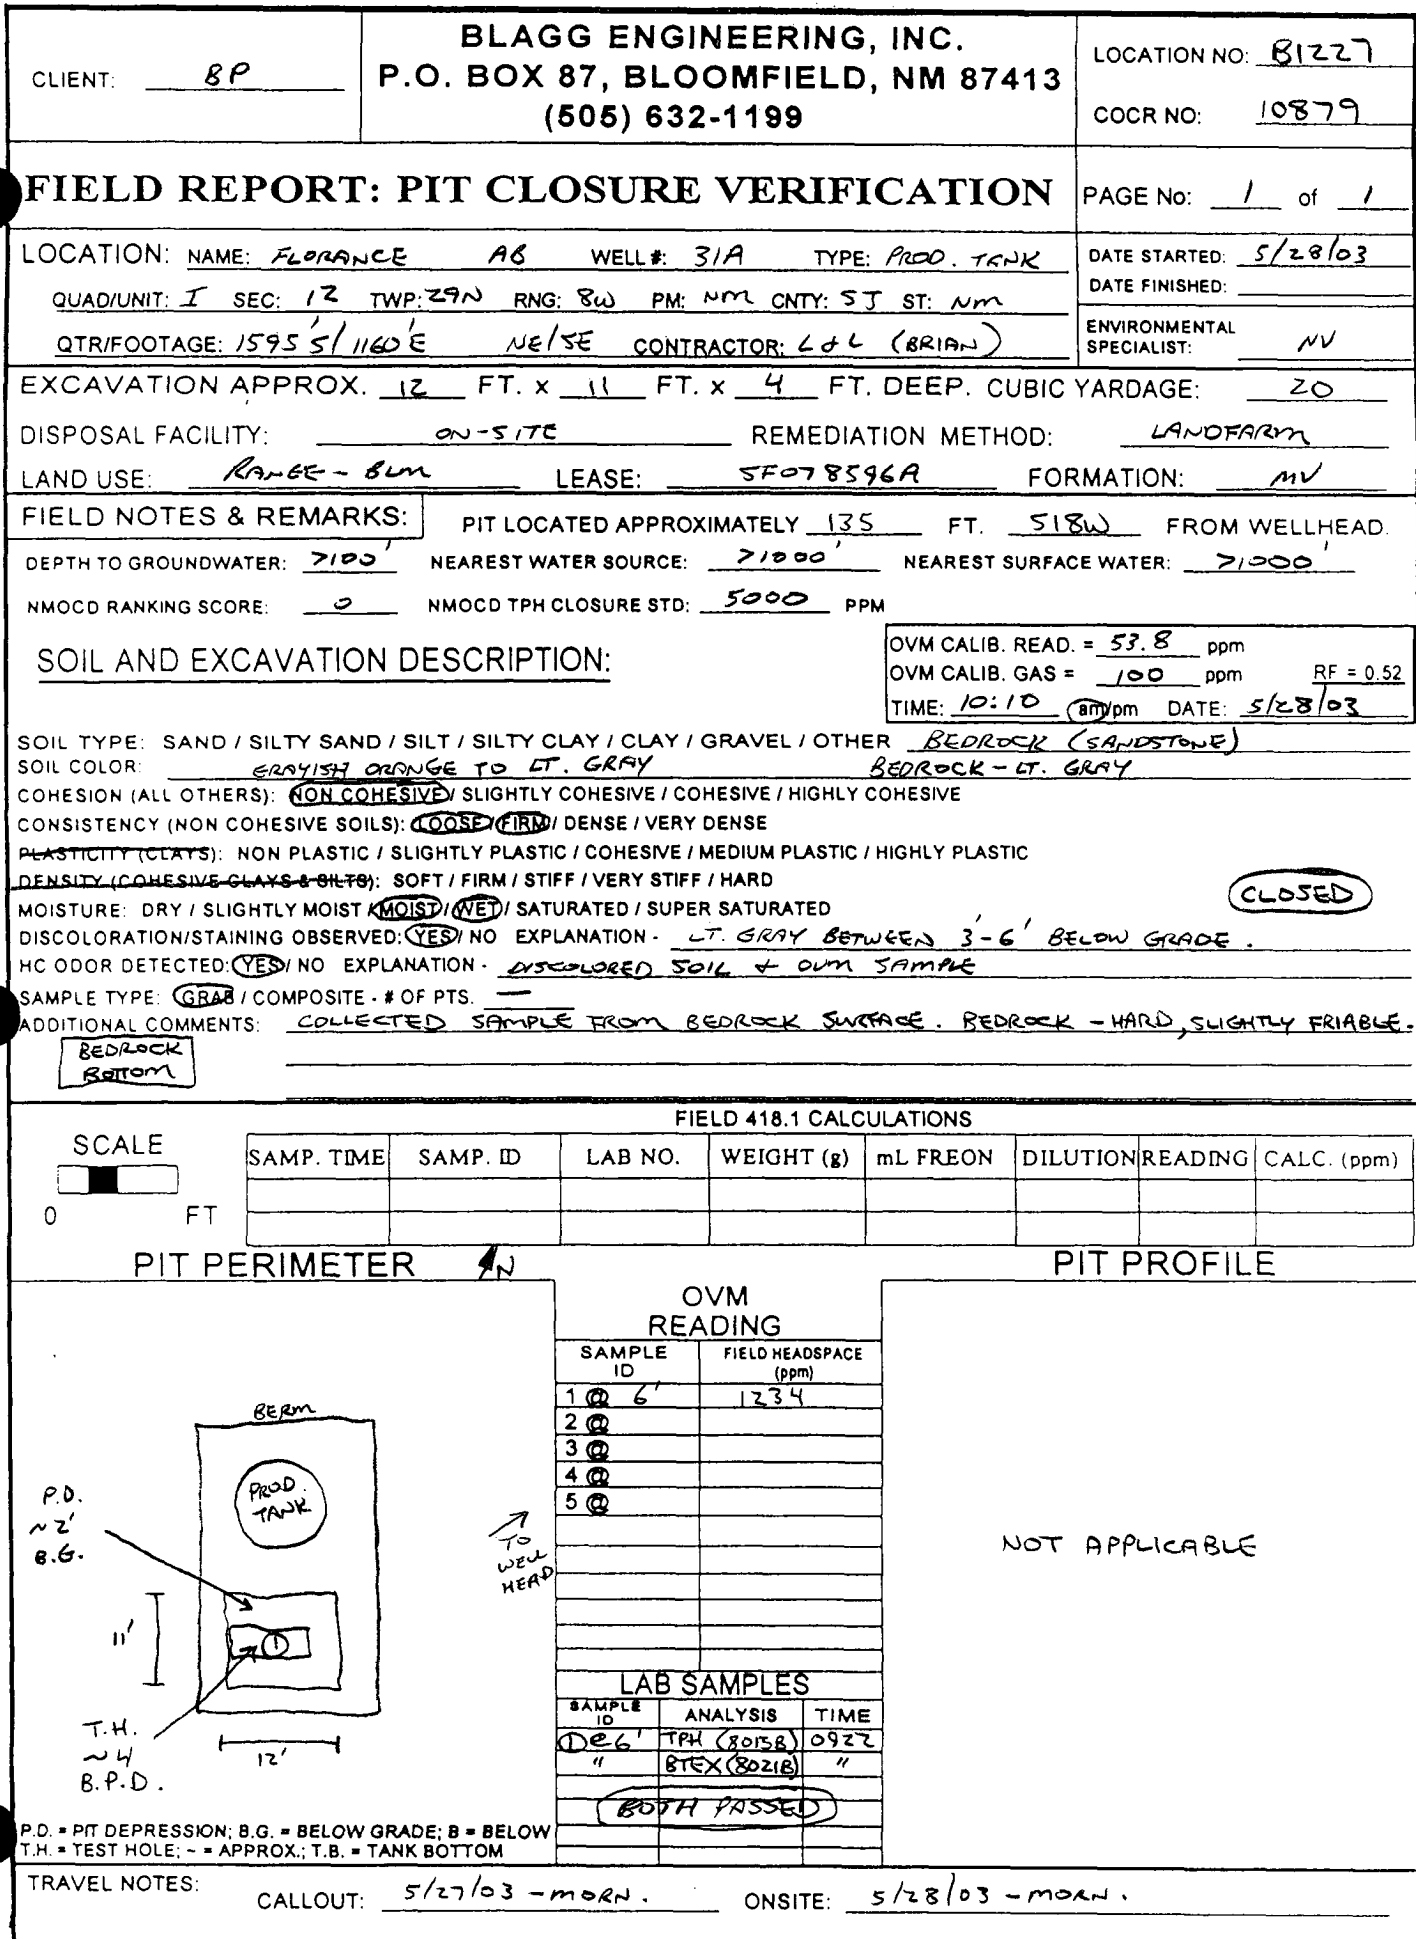 CLIENT: BP
BLAGG ENGINEERING, INC.
P.O. BOX 87, BLOOMFIELD, NM 87413
(505) 632-1199
LOCATION NO: B1227
COCR NO: 10879
FIELD REPORT: PIT CLOSURE VERIFICATION
PAGE No: 1 of 1
LOCATION: NAME: FLORANCE AB WELL #: 31A TYPE: PROD. TANK
QUAD/UNIT: I SEC: 12 TWP: 29N RNG: 8W PM: NM CNTY: SJ ST: NM
QTR/FOOTAGE: 1595'S/1160'E NE/SE CONTRACTOR: L & L (BRIAN)
DATE STARTED: 5/28/03
DATE FINISHED:
ENVIRONMENTAL
SPECIALIST: NV
EXCAVATION APPROX. 12 FT. x 11 FT. x 4 FT. DEEP. CUBIC YARDAGE: 20
DISPOSAL FACILITY: ON-SITE REMEDIATION METHOD: LANDFARM
LAND USE: RANGE - BLM LEASE: SF078596A FORMATION: MV
FIELD NOTES & REMARKS: PIT LOCATED APPROXIMATELY 135 FT. S18W FROM WELLHEAD.
DEPTH TO GROUNDWATER: >100' NEAREST WATER SOURCE: >1000' NEAREST SURFACE WATER: >1000'
NMOCD RANKING SCORE: 0 NMOCD TPH CLOSURE STD: 5000 PPM
SOIL AND EXCAVATION DESCRIPTION:
OVM CALIB. READ. = 53.8 ppm
OVM CALIB. GAS = 100 ppm RF = 0.52
TIME: 10:10 am/pm DATE: 5/28/03
SOIL TYPE: SAND / SILTY SAND / SILT / SILTY CLAY / CLAY / GRAVEL / OTHER BEDROCK (SANDSTONE)
SOIL COLOR: GRAYISH ORANGE TO LT. GRAY BEDROCK - LT. GRAY
COHESION (ALL OTHERS): NON COHESIVE / SLIGHTLY COHESIVE / COHESIVE / HIGHLY COHESIVE
CONSISTENCY (NON COHESIVE SOILS): LOOSE / FIRM / DENSE / VERY DENSE
PLASTICITY (CLAYS): NON PLASTIC / SLIGHTLY PLASTIC / COHESIVE / MEDIUM PLASTIC / HIGHLY PLASTIC
DENSITY (COHESIVE CLAYS & SILTS): SOFT / FIRM / STIFF / VERY STIFF / HARD
CLOSED
MOISTURE: DRY / SLIGHTLY MOIST / MOIST / WET / SATURATED / SUPER SATURATED
DISCOLORATION/STAINING OBSERVED: YES / NO EXPLANATION - LT. GRAY BETWEEN 3'-6' BELOW GRADE.
HC ODOR DETECTED: YES / NO EXPLANATION - DISCOLORED SOIL + OVM SAMPLE
SAMPLE TYPE: GRAB / COMPOSITE - # OF PTS. —
ADDITIONAL COMMENTS: COLLECTED SAMPLE FROM BEDROCK SURFACE. BEDROCK - HARD, SLIGHTLY FRIABLE.
BEDROCK
BOTTOM
FIELD 418.1 CALCULATIONS
SCALE
0 FT
SAMP. TIME SAMP. ID LAB NO. WEIGHT (g) mL FREON DILUTION READING CALC. (ppm)
PIT PERIMETER N
PIT PROFILE
OVM
READING
SAMPLE ID FIELD HEADSPACE (ppm)
1 @ 6' 1234
2 @
3 @
4 @
5 @
BERM
PROD.
TANK
P.D.
~2'
B.G.
TO
WELL
HEAD
11'
1
T.H.
~4
B.P.D.
12'
NOT APPLICABLE
LAB SAMPLES
SAMPLE ID ANALYSIS TIME
1 @ 6' TPH (8015B) 0922
" BTEX (8021B) "
BOTH PASSED
P.D. = PIT DEPRESSION; B.G. = BELOW GRADE; B = BELOW
T.H. = TEST HOLE; ~ = APPROX.; T.B. = TANK BOTTOM
TRAVEL NOTES: CALLOUT: 5/27/03 - MORN. ONSITE: 5/28/03 - MORN.